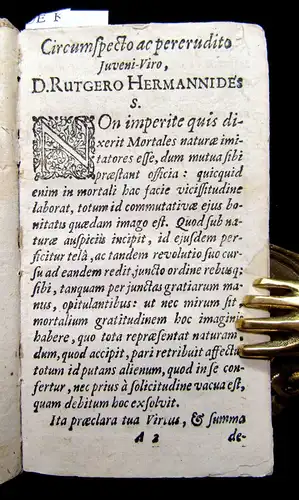 E K
Circumspecto ac pererudito
Juveni-Viro,
D. RUTGERO HERMANNIDES
S.
NOn imperite quis di-
xerit Mortales naturæ imi-
tatores esse, dum mutua sibi
præstant officia: quicquid
enim in mortali hac facie vicissitudine
laborat, totum id commutativæ ejus bo-
nitatis quædam imago est. Quod sub na-
turæ auspiciis incipit, id ejusdem per-
ficitur telâ, ac tandem revolutio suo cur-
su ad eandem redit, juncto ordine rebusq;
sibi, tanquam per junctas gratiarum ma-
nus, opitulantibus: ut nec mirum sit
mortalium gratitudinem hoc imaginis
habere, quo tota repræsentat naturam,
dum, quod accipit, pari retribuit affectu,
totum id putans alienum, quod in se con-
fertur, nec prius à solicitudine vacua est,
quam debitum hoc exsolvit.
Ita præclara tua Virtus, & summa
A 2
de-